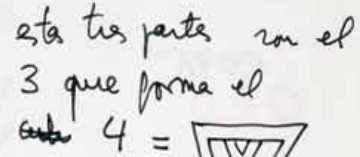 estas tres partes son el
3 que forma el
4 =